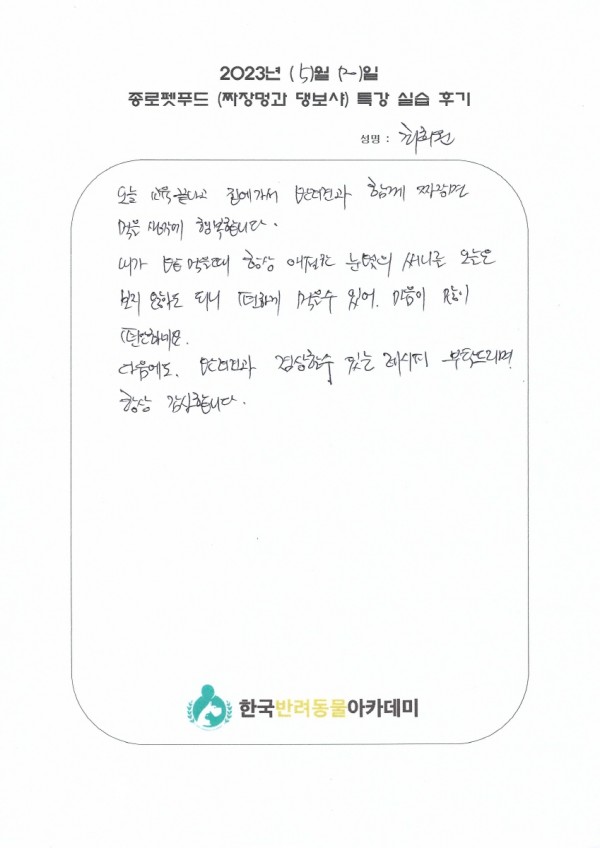 2023년 (5)월 (2)일
종로펫푸드 (짜장멍과 댕보샤) 특강 실습 후기
성명 : 최희원
오늘 교육끝나고 집에가서 반려견과 함께 짜장면
먹을 생각에 행복합니다.
내가 밥 먹을때 항상 애절한 눈빛의 써니를 오늘은
보지 않아도 되니 편하게 먹을수 있어. 마음이 많이
편안하네요.
다음에도. 반려견과 겸상할수 있는 레시피 부탁드리며
항상 감사합니다.
한국반려동물아카데미